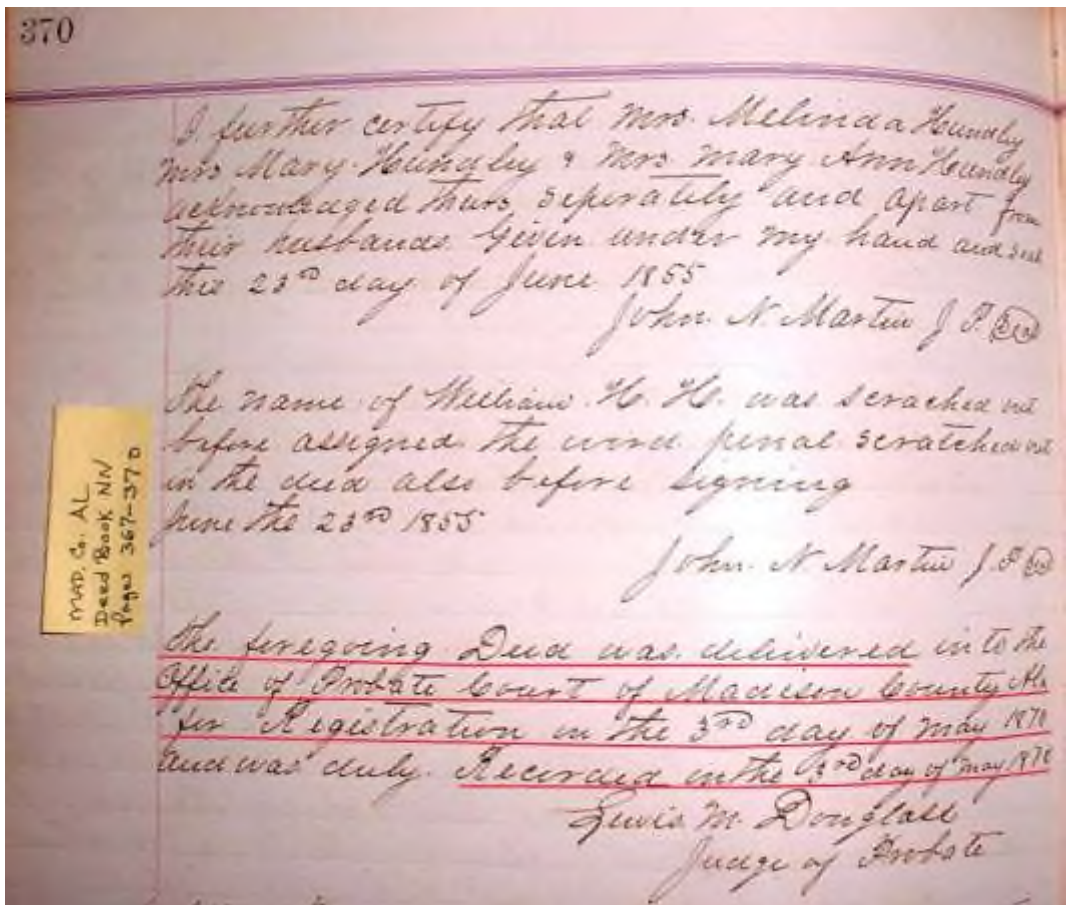 370
I further certify that Mrs. Melinda Hundly
Mrs Mary Hundley & Mrs Mary Ann Hundly
acknowledged thurs seperately and apart from
their husbands. Given under my hand and seal
this 23rd day of June 1855
John. N. Martin J P. Seal
The name of William. H. H. was scrached out
before assigned the word penal scratched out
in the deed also before signing
June the 23rd 1855
John. N Martin J. P
MAD. Co. AL
Deed Book NN
Pages 367-370
The foregoing Deed was delivered in to the
Office of Probate Court of Madison County Ala
for Registration on the 3rd day of May 1870
and was duly. Recorded on the 3rd day of May 1870
Lewis M. Douglass
Judge of Probate